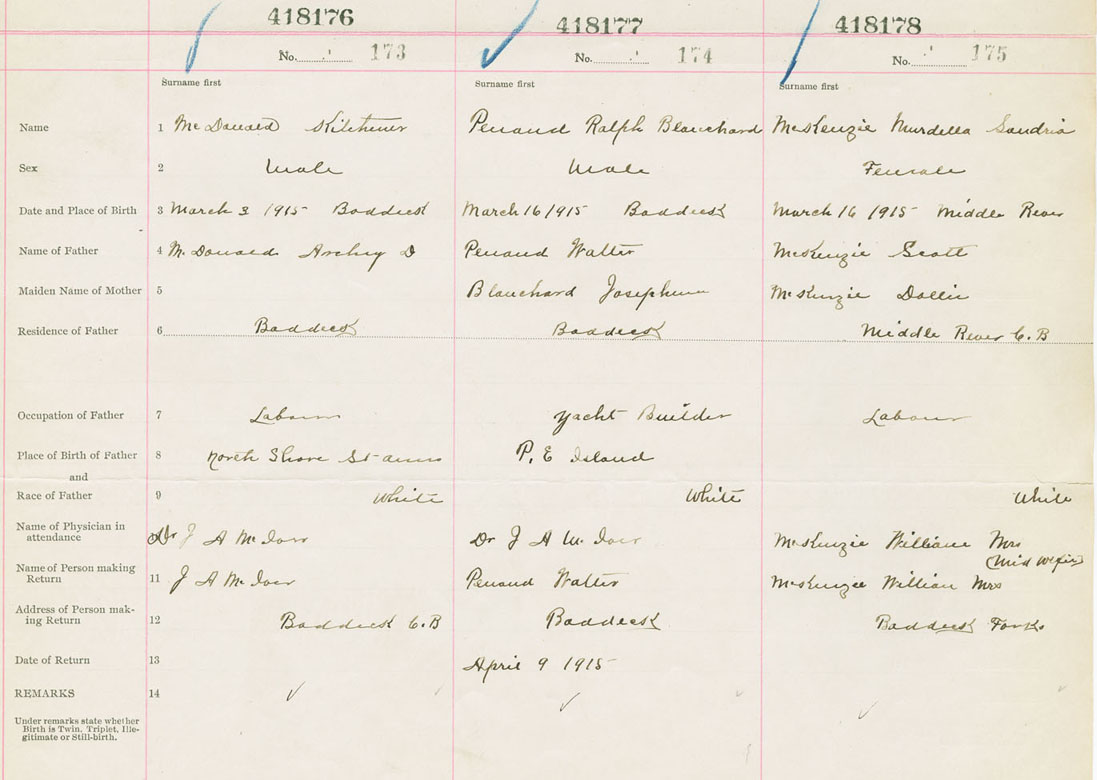 418176 418177 418178
No. 173 No. 174 No. 175
Surname first Surname first Surname first
Name 1 McDonald Kitchener Penaud Ralph Blanchard McKenzie Murdella Sandria
Sex 2 Male Male Female
Date and Place of Birth 3 March 3 1915 Baddeck March 16 1915 Baddeck March 16 1915 Middle River
Name of Father 4 McDonald Archey D Penaud Walter McKenzie Scott
Maiden Name of Mother 5 Blanchard Josephine McKenzie Dollie
Residence of Father 6 Baddeck Baddeck Middle River C.B
Occupation of Father 7 Labour Yacht Builder Labour
Place of Birth of Father 8 North Shore St anns P. E Island
and
Race of Father 9 White White White
Name of Physician in
attendance Dr J A McIver Dr J A McIver McKenzie William Mrs
(Mid Wife)
Name of Person making
Return 11 J A McIver Penaud Walter McKenzie William Mrs
Address of Person mak-
ing Return 12 Baddeck C.B Baddeck Baddeck Forks
Date of Return 13 April 9 1915
REMARKS 14
Under remarks state whether
Birth is Twin. Triplet, Ille-
gitimate or Still-birth.